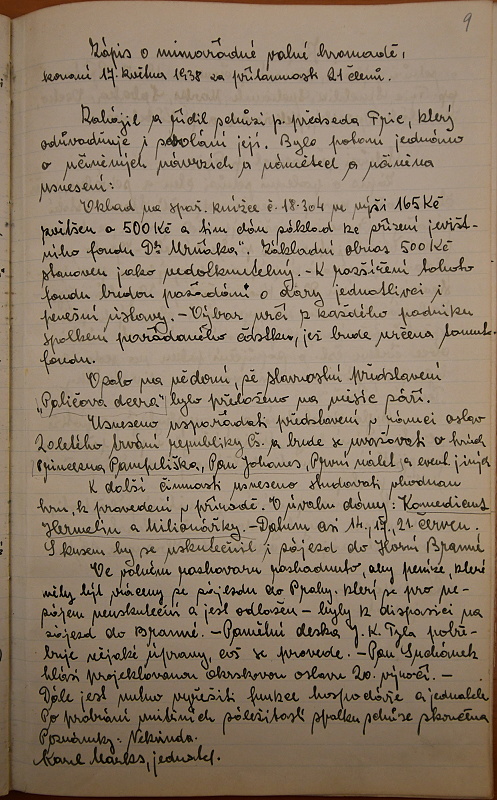 9
Zápis o mimořádné valné hromadě,
konané 17. května 1938 za přítomnosti 21 členů.
Zahájil a řídil schůzi p. předseda Gric, který
odůvodňuje i svolání její. Bylo potom jednáno
o učiněných návrzích a námětech a učiněna
usnesení:
Vklad na spoř. knížce č. 18.304 ve výši 165 Kč
zvýšen o 500 Kč a tím dán základ ke zřízení jevišt-
ního fondu Dra Mrňáka". Základní obnos 500 Kč
stanoven jako nedotknutelný. - K rozšíření tohoto
fondu budou požádáni o dary jednotlivci i
peněžní ústavy. - Výbor určí z každého podniku
spolkem pořádaného částku, jež bude určena tomuto
fondu.
Vzato na vědomí, že slavnostní představení
"Paličova dcera" bylo přeloženo na měsíc září.
Usneseno uspořádati představení v rámci oslav
20letého trvání republiky Čs. a bude se uvažovati o hrách
Princezna Pampeliška, Pan Johanes, První nálet a event. jiných
K další činnosti usneseno studovati vhodnou
hru, k provedení v přírodě. V úvahu dány: Komediant
Hermelin a Milionářky. - Datum asi 14., 19., 21. červen.
S kusem by se uskutečnil i zájezd do Horní Branné
Ve volném rozhovoru rozhodnuto, aby peníze, které
měly být vráceny ze zájezdu do Prahy, který se pro ne-
zájem neuskuteční a jest odložen - byly k disposici na
zájezd do Branné. - Pamětní deska J. K. Tyla potře-
buje nějaké úpravy, což se provede. - Pan Suchánek
hlásí projektovanou Okrskovou oslavu 20. výročí. -
Dále jest nutno vyřešiti funkce hospodáře a jednatele
Po probrání vnitřních záležitostí spolku schůze skončena
Poznámky: Nekvinda.
Karel Marks, jednatel.